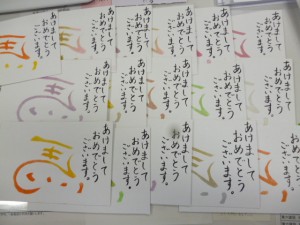 あけまして
おめでとう
ございます。
あけまして
おめでとう
ございます。
あけまして
おめでとう
ございます。
あけまして
おめでとう
ございます。
あけまして
おめでとう
ございます。
あけまして
おめでとう
ございます。
あけまして
おめでとう
ございます。
あけまして
おめでとう
ございます。
あけまして
おめでとう
ございます。
あけまして
おめでとう
ございます。
あけまして
おめでとう
ございます。
あけまして
おめでとう
ございます。